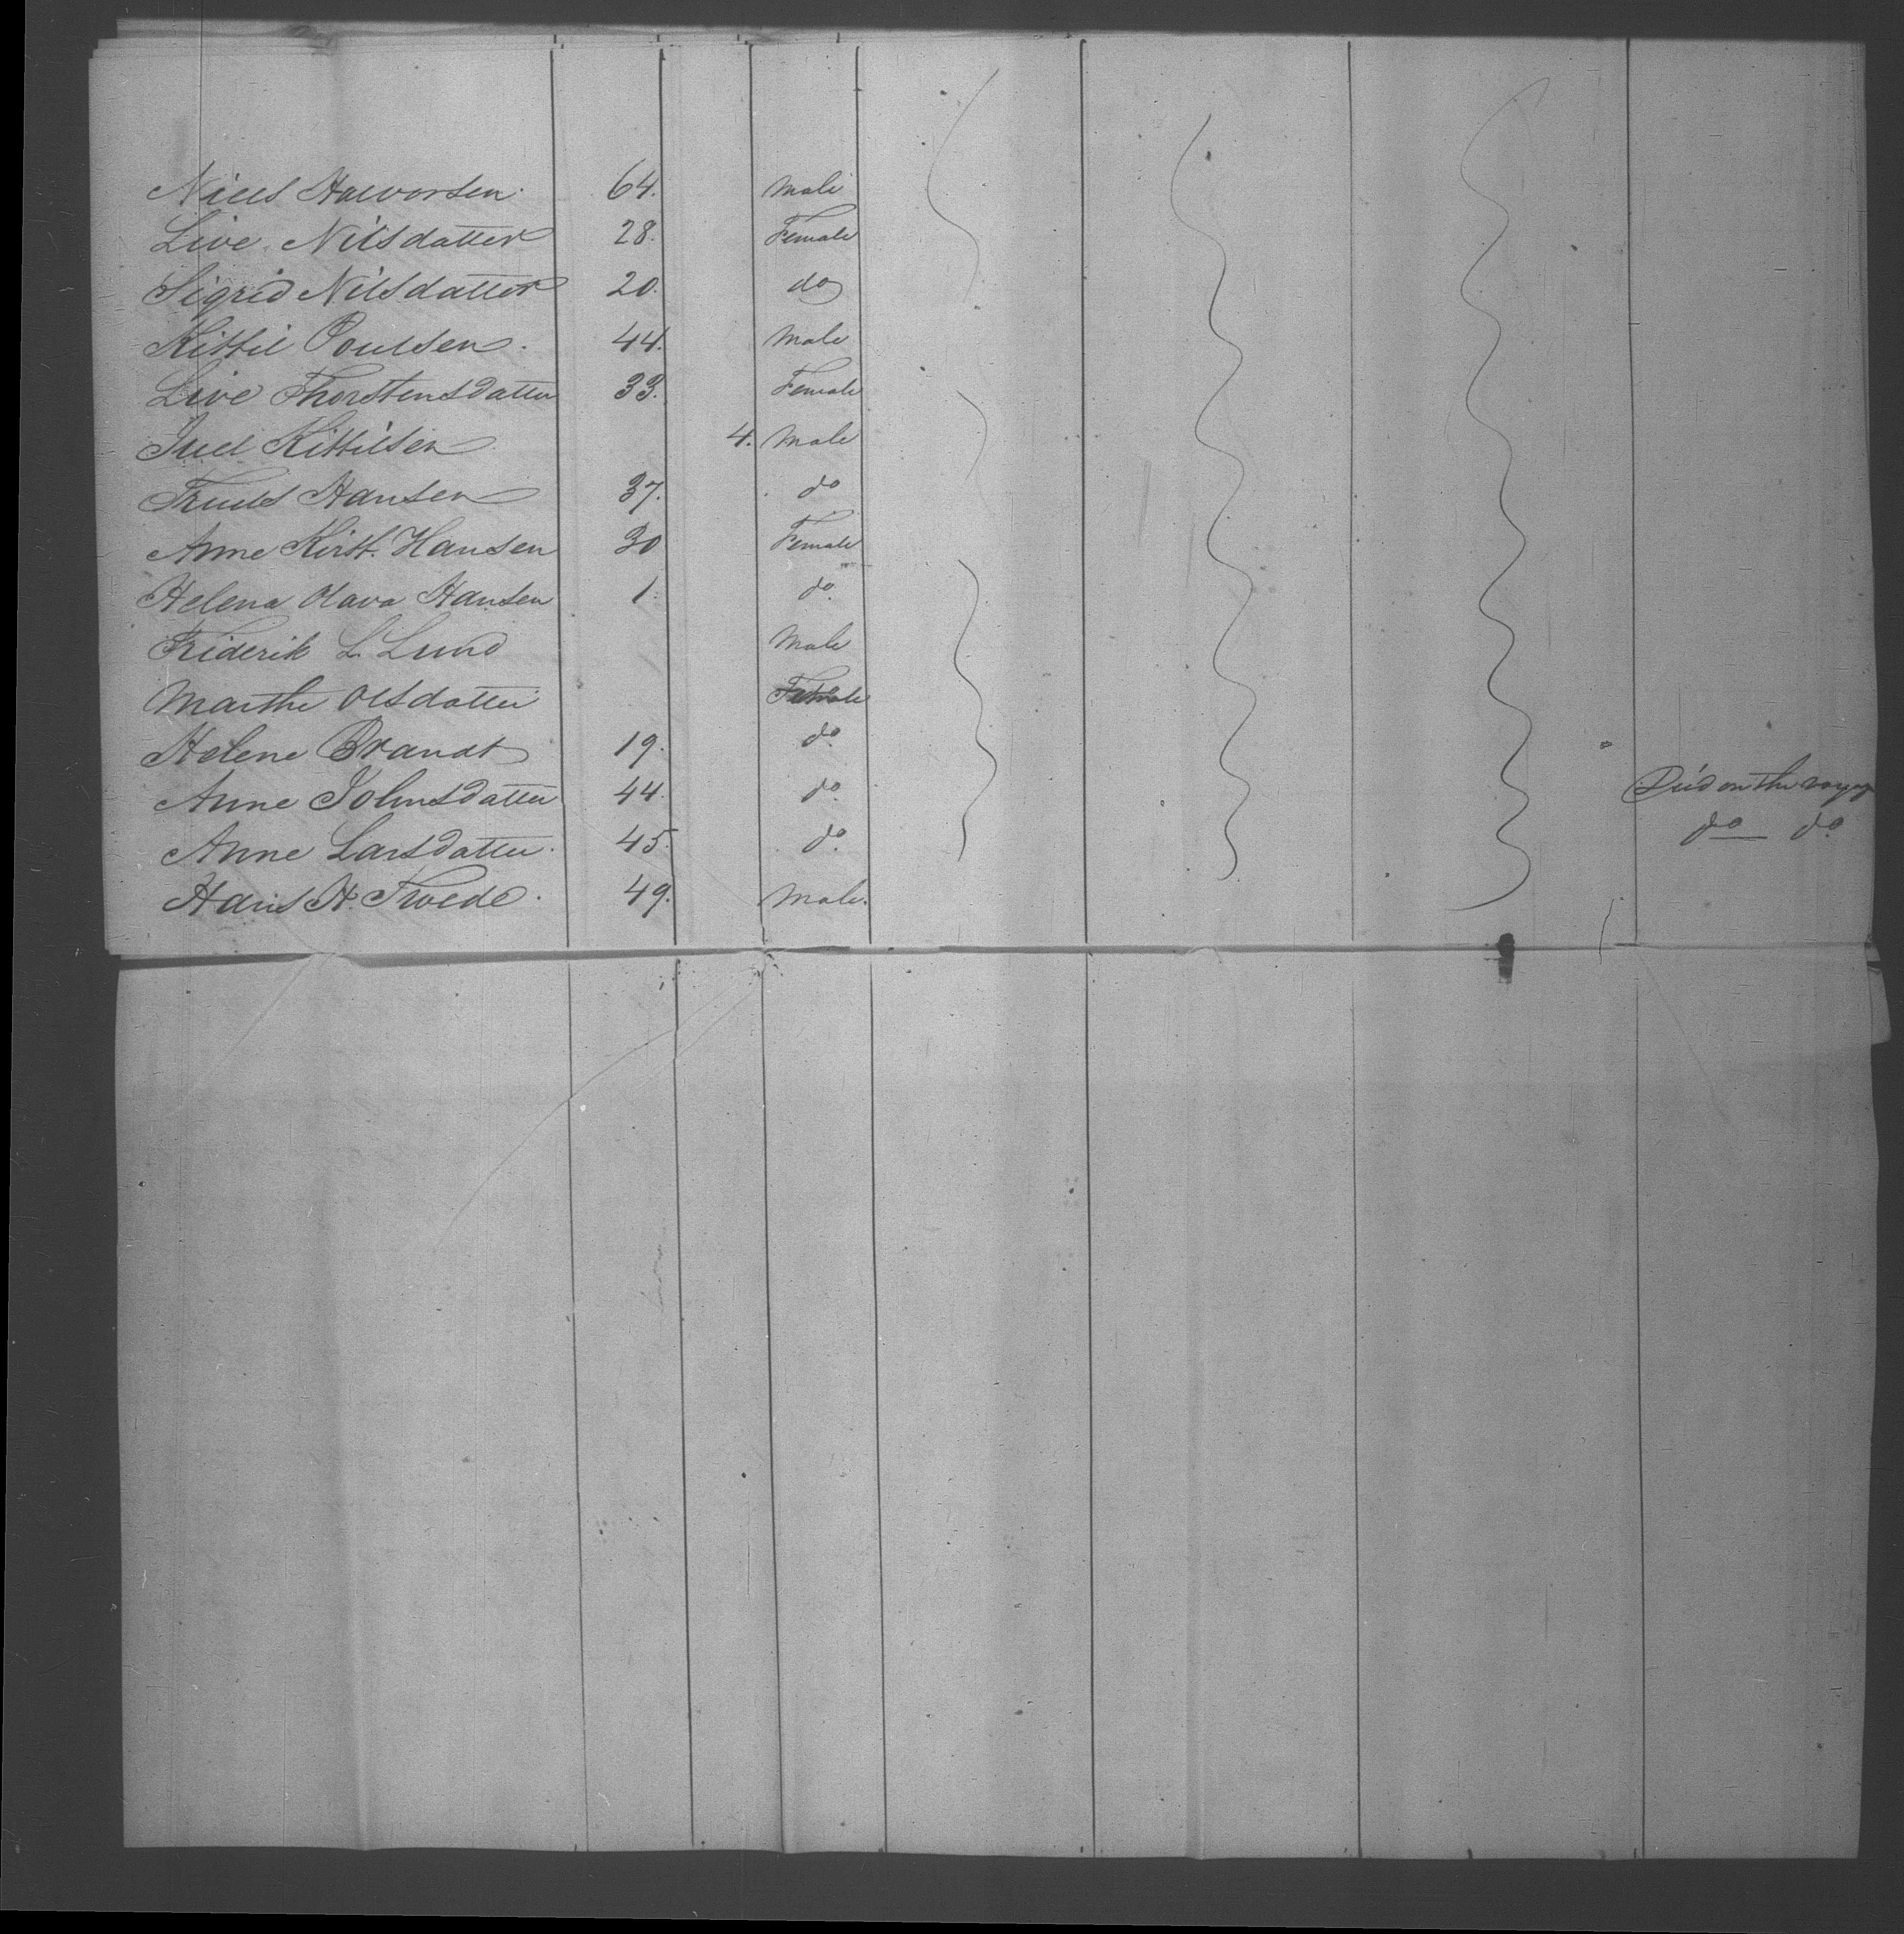 Niels Halvorsen. 64. Male
Live Nilsdatter 28. Female
Sigrid Nilsdatter 20. do
Kittil Poulsen. 44. Male
Live Thorstensdatter 33. Female
Juel Kittilsen 4. Male
Truls Hansen 37. do
Anne Kirst. Hansen 30 Female
Helena Olava Hansen 1. do.
Friderik L. Lund Male
Marthe Olsdatter Female
Helene Brandt 19. do.
Anne Johnsdatter 44. do. Died on the voyage
Anne Larsdatter. 45. do. do do.
Hans H. Twede. 49. Male.